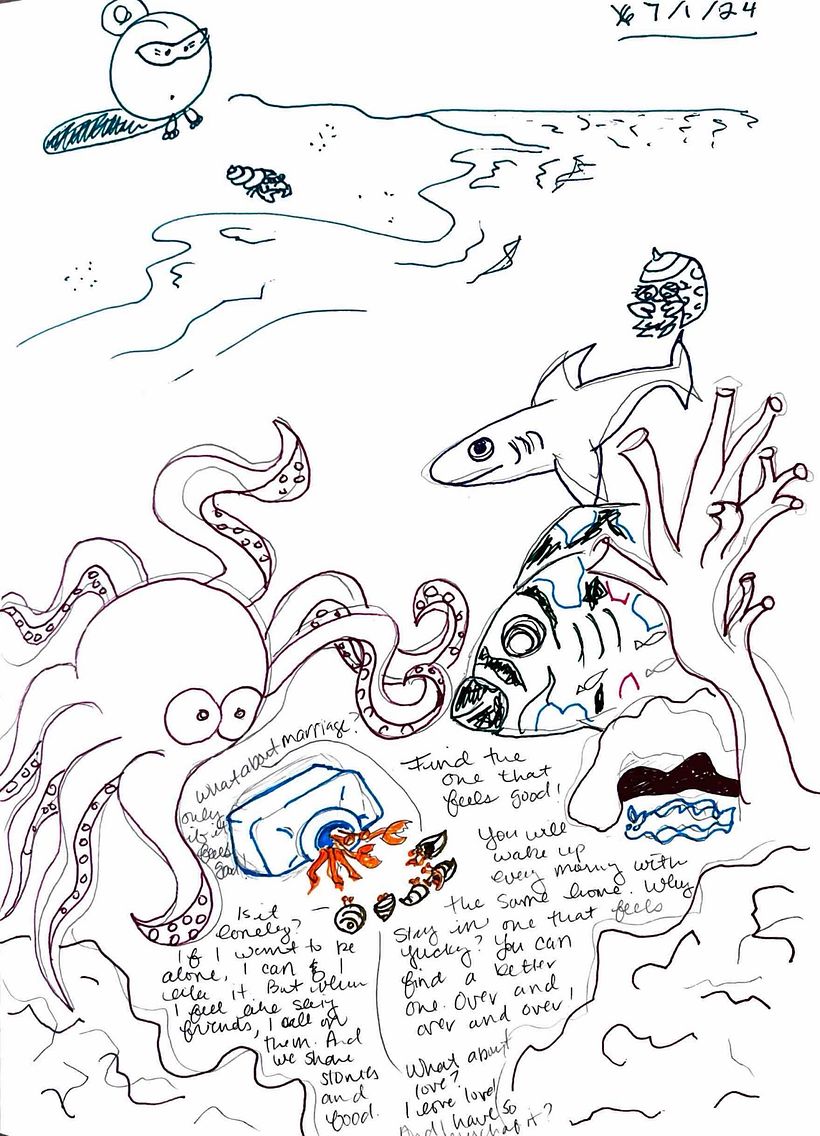 7/1/24
what about marriage?
only
if it
feels
good!
Find the
one that
feels good!
You will
wake up
every morning with
the same home. Why
stay in one that feels
yucky? You can
find a better
one. Over and
over and over!
Is it
lonely?
If I want to be
alone, I can & I
like it. But when
I feel like
friends, I call on
them. And
we share
stories
and
food.
What about
love?
I love love!
And I have so
of it?